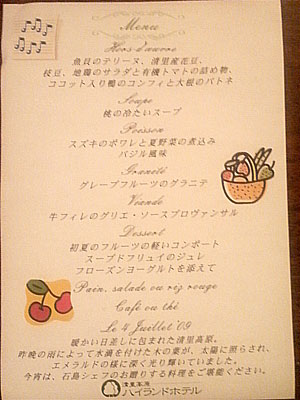 Menu
Hors d'œuvre
魚貝のテリーヌ、清里産花豆、
枝豆、地鶏のサラダと有機トマトの詰め物、
ココット入り鴨のコンフィと大根のパトネ
Soupe
桃の冷たいスープ
Poisson
スズキのポワレと夏野菜の煮込み
バジル風味
Granité
グレープフルーツのグラニテ
Viande
牛フィレのグリエ・ソースプロヴァンサル
Dessert
初夏のフルーツの軽いコンポート
スープドフリュイのジュレ
フローズンヨーグルトを添えて
Pain, salade ou riz rouge
Café ou thé
Le 4 Juillet '09
暖かい日差しに包まれた清里高原。
昨晩の雨によって水滴を付けた木の葉が、太陽に照らされ、
エメラルドの様に深く光り輝いていました。
今宵は、石島シェフのお贈りする料理をご堪能ください。
清里高原
ハイランドホテル